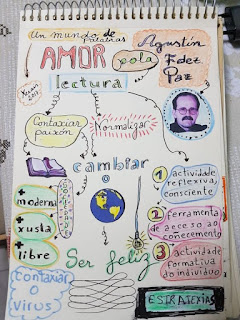 Un mundo de palabras
AMOR pola
lectura
Agustín
Fdez
Paz
Contaxiar
paixón
Normalizar
cambiar
o
+
moderna
+
xusta
+
libre
SOCIEDADE
1 actividade
reflexiva,
consciente
2 ferramenta
de acceso ao
coñecemento
3 actividade
formativa
do individuo
Ser feliz
Contaxiar
o
virus
ESTRATEXIAS